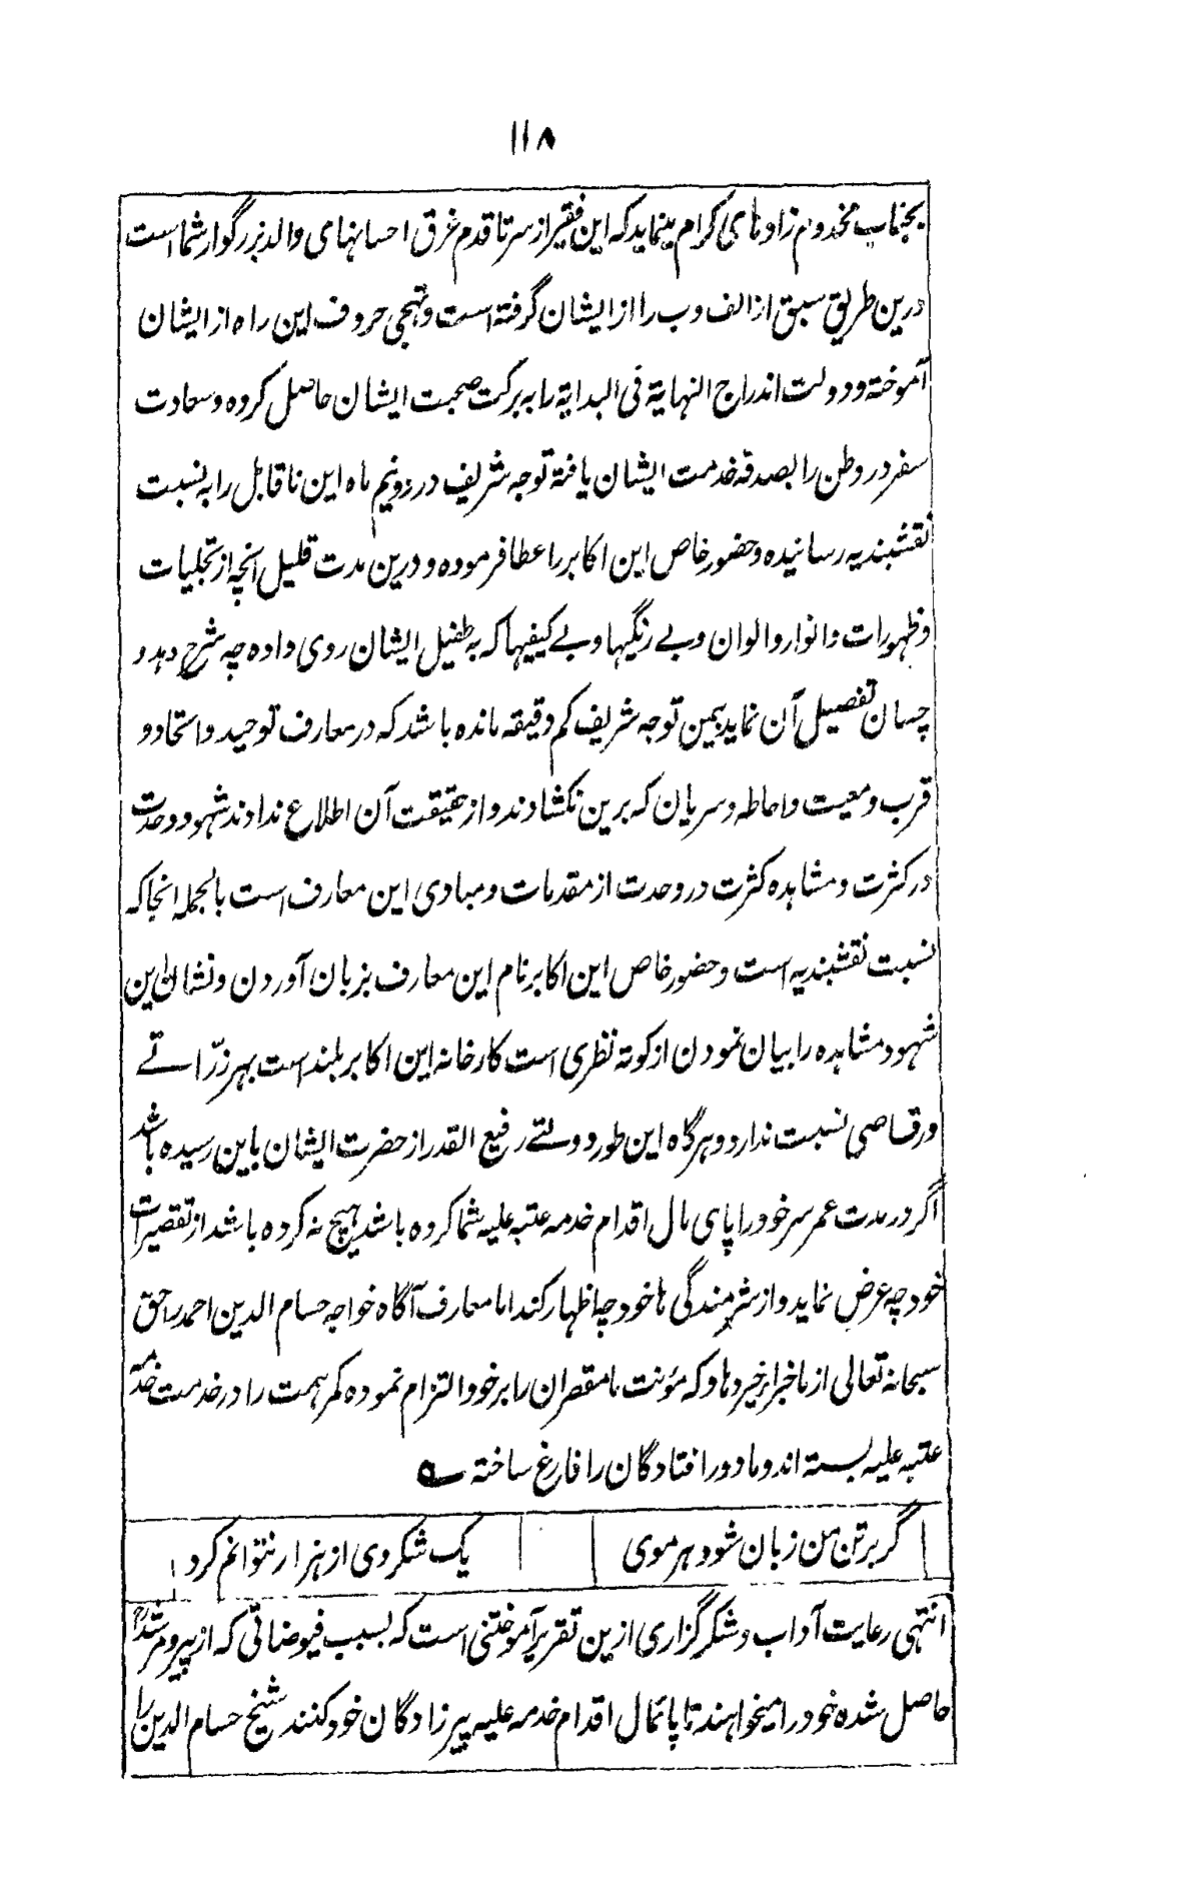 ۱۱۸
بجناب مخدوم زادہای کرام مینماید کہ این فقیر از سر تا قدم غرق احسانہای والد بزرگوار شما است
درین طریق سبق از الف و ب را از ایشان گرفتہ است و تہجی حروف این راہ از ایشان
آموختہ و دولت اندراج النہایۃ فی البدایۃ را بہ برکت صحبت ایشان حاصل کردہ و سعادت
سفر در وطن را بصدقہ خدمت ایشان یافتہ توجہ شریف در دونیم ماہ این ناقابل را بہ نسبت
نقشبندیہ رسانیدہ و حضور خاص این اکابر را عطا فرمودہ و درین مدت قلیل آنچہ از تجلیات
و ظہورات و انوار و الوان و بے رنگیہا و بے کیفیہا کہ بہ طفیل ایشان روی دادہ چہ شرح دہد و
چسان تفصیل آن نماید بیمن توجہ شریف کم دقیقہ ماندہ باشد کہ در معارف توحید و اتحاد و
قرب و معیت و احاطہ و سریان کہ برین نکشادند و از حقیقت آن اطلاع ندادند شہود وحدت
در کثرت و مشاہدہ کثرت در وحدت از مقدمات و مبادی این معارف است بالجملہ انجا کہ
نسبت نقشبندیہ است و حضور خاص این اکابر نام این معارف بزبان آوردن و نشان این
شہود و مشاہدہ را بیان نمودن از کوتہ نظری است کارخانہ این اکابر بلند است بہر زرّاتے
و رقاصی نسبت ندارد و ہرگاہ این طور دولتے رفیع القدر از حضرت ایشان باین رسیدہ باشد
اگر در مدت عمر سر خود را پای مال اقدام خدمہ عتبہ علیہ شما کردہ باشد ہیچ نہ کردہ باشد از تقصیرات
خود چہ عرض نماید و از شرمندگی ہا خود چہ اظہار کند اما معارف آگاہ خواجہ حسام الدین احمد را حق
سبحانہ تعالی از ما خبر از خیر دہاد کہ مؤنت ما مقصران را بر خود التزام نمودہ کمر ہمت را در خدمت خدمہ
عتبہ علیہ بستہ اند و ما دور افتادگان را فارغ ساختہ ؎
گر بر تن من زبان شود ہر موی یک شکر وی از ہزار نتوانم کرد
انتہی رعایت آداب و شکر گزاری ازین تقریر آموختنی است کہ بسبب فیوضاتی کہ از پیر و مرشد
حاصل شدہ خود را میخواہند تا پائمال اقدام خدمہ علیہ پیرزادگان خود کنند شیخ حسام الدین را